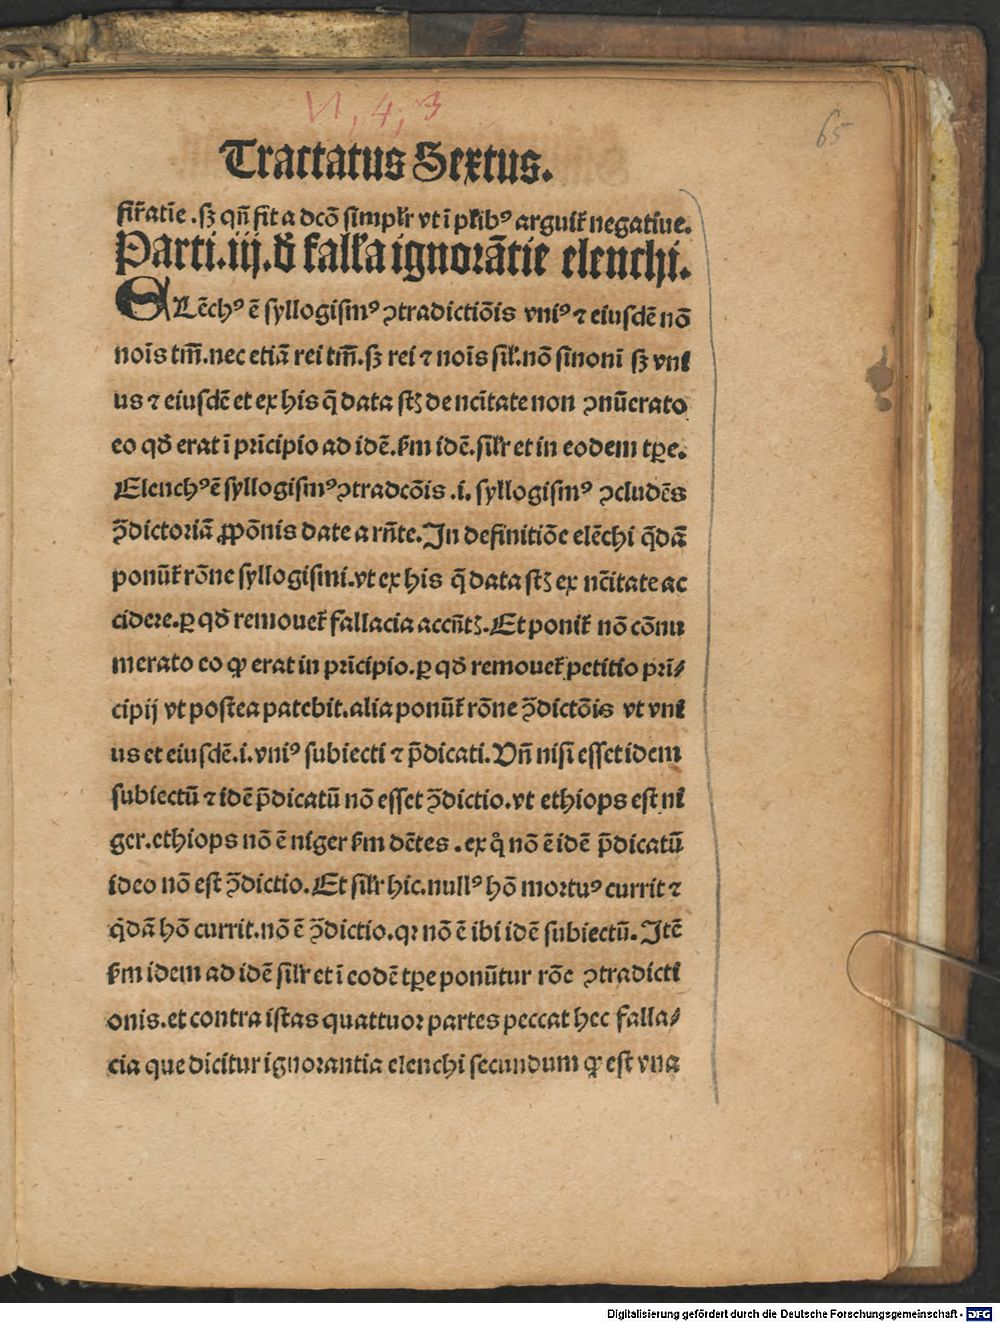 VI, 4, 3
65
Tractatus Sextus.
firᷓatīe .sꝫ qn̄ fit a dcō simplr̄ vt ī pl̄ibꝰ arguit᷑ negatiue.
Parti.iij.đ fall̄a ignorātie elenchi.
ELēchꝰ ē syllogismꝰ ↄtradictiōis vniꝰ ⁊ eiusdē nō
nois̄ tm̄.nec etiā rei tm̄.sꝫ rei ⁊ nois̄ sil̄.nō sinoni sꝫ vni
us ⁊ eiusdē et ex his q̄ data st̄ꝫ de nc̄itate non ↄnūerato
eo qđ erat ī prīcipio ad idē.ẜm idē.silr̄ et in eodem tꝑe.
Elenchꝰ ē syllogismꝰ ↄtradcōis .i. syllogismꝰ ↄcludēs
ↄ̄dictoriā ꝓpōnis date a rn̄te. In definitiōe elēchi q̄dā
ponūt᷑ rōne syllogismi.vt ex his q̄ data st̄ꝫ ex nc̄itate ac
cidere.ꝑ qđ remouet᷑ fallacia accn̄tꝫ. Et ponit᷑ nō cōnu
merato eo ꝙ erat in prīcipio.ꝑ qđ remouet᷑ petitio prī/
cipij vt postea patebit.alia ponūt᷑ rōne ↄ̄dictōis vt vni
us et eiusdē.i.vniꝰ subiecti ⁊ p̄dicati. Vn̄ nisi esset idem
subiectū ⁊ idē p̄dicatū nō esset ↄ̄dictio.vt ethiops est ni
ger.ethiops nō ē niger ẜm dētes .ex qͦ nō ē idē p̄dicatū
ideo nō est ↄ̄dictio. Et silr̄ hic.nullꝰ hō mortuꝰ currit ⁊
qͥdā hō currit.nō ē ↄ̄dictio.qꝛ nō ē ibi idē subiectū. Itē
ẜm idem ad idē silr̄ et ī eodē tꝑe ponūtur rōe ↄtradicti
onis.et contra istas quattuor partes peccat hec falla/
cia que dicitur ignorantia elenchi secundum ꝙ est vna
Digitalisierung gefördert durch die Deutsche Forschungsgemeinschaft - DFG